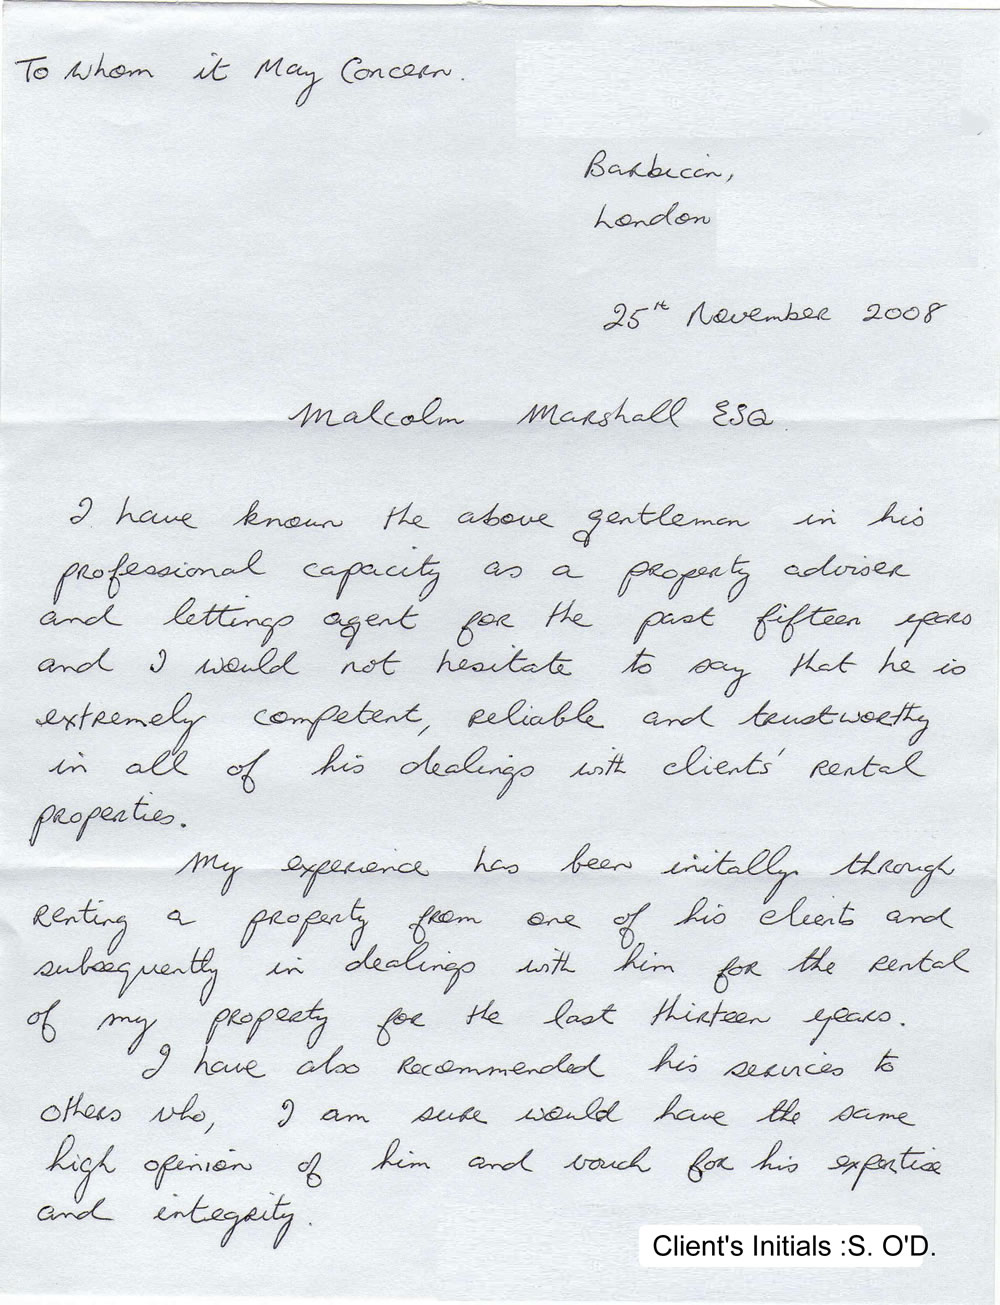 To Whom it May Concern.
Barbican,
London
25th November 2008
Malcolm Marshall ESQ
I have known the above gentleman in his
professional capacity as a property adviser
and lettings agent for the past fifteen years
and I would not hesitate to say that he is
extremely competent, reliable and trustworthy
in all of his dealings with clients' rental
properties.
My experience has been initally through
renting a property from one of his clients and
subsequently in dealings with him for the rental
of my property for the last thirteen years.
I have also recommended his services to
others who, I am sure would have the same
high opinion of him and vouch for his expertise
and integrity.
Client's Initials :S. O'D.